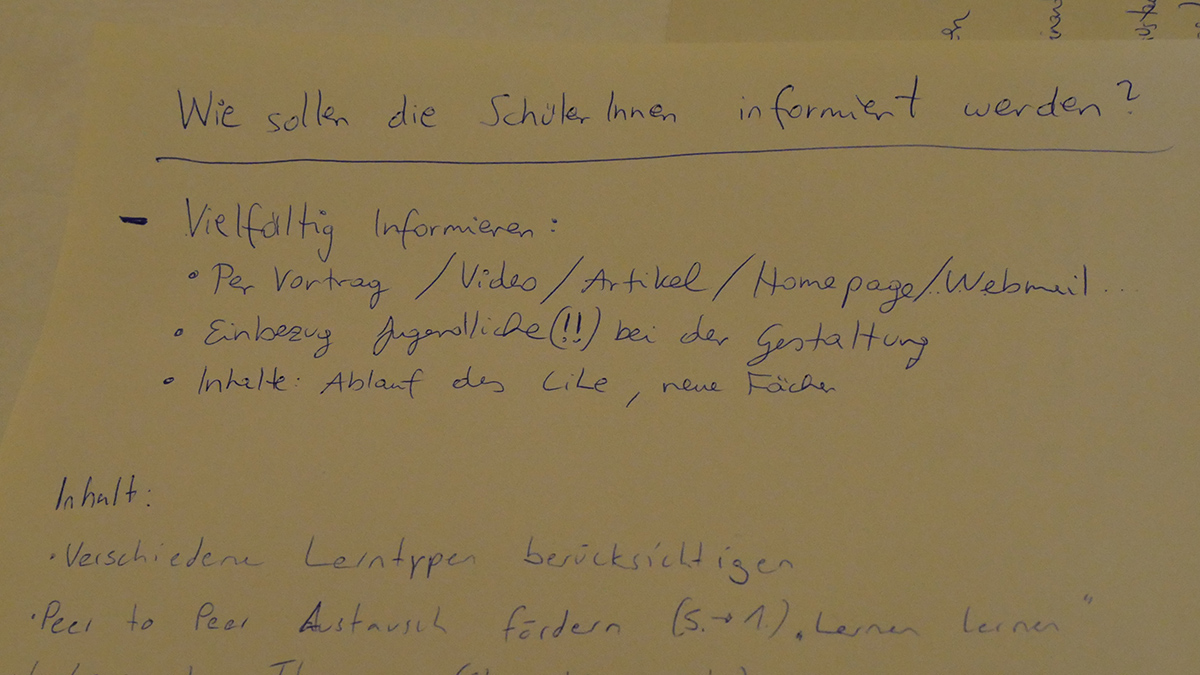 Wie sollen die SchülerInnen informiert werden?
- Vielfältig Informieren:
• Per Vortrag / Video / Artikel / Homepage / Webmail ...
• Einbezug Jugendliche (!!) bei der Gestaltung
• Inhalte: Ablauf des LiLe, neue Fächer
Inhalt:
• Verschiedene Lerntypen berücksichtigen
• Peer to Peer Austausch fördern (5. → 1.) „Lernen lernen"